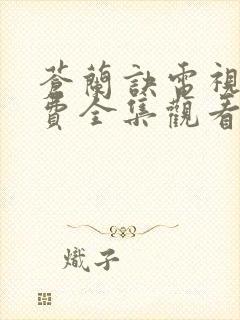 蒼蘭訣電視
費全集觀看
熾子